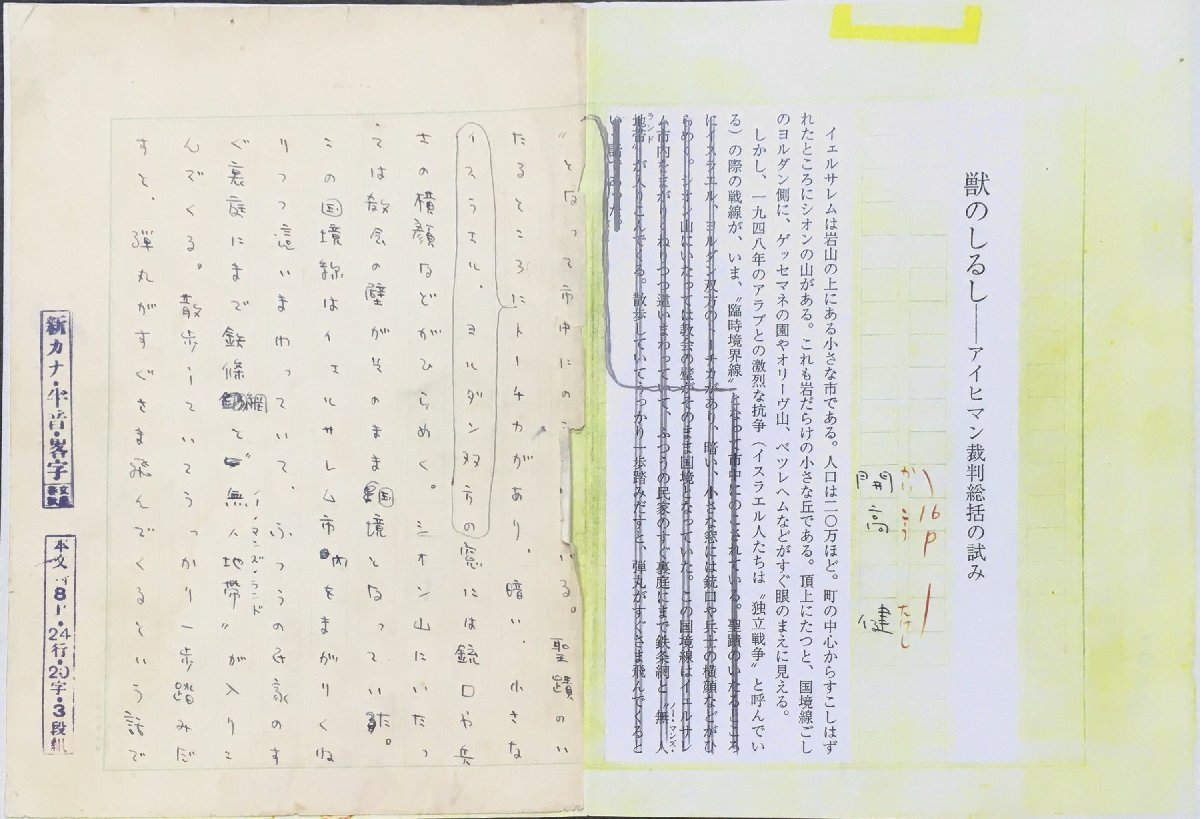 獣のしるし——アイヒマン裁判総括の試み
16P
開高 健
かいこう たけし
イェルサレムは岩山の上にある小さな市である。人口は二〇万ほど。町の中心からすこしはず
れたところにシオンの山がある。これも岩だらけの小さな丘である。頂上にたつと、国境線ごし
のヨルダン側に、ゲッセマネの園やオリーヴ山、ベツレヘムなどがすぐ眼のまえに見える。
しかし、一九四八年のアラブとの激烈な抗争（イスラエル人たちは〝独立戦争〟と呼んでい
る）の際の戦線が、いま、〝臨時境界線〟となって市中にのこされている。聖蹟のいたるところ
にイスラエル、ヨルダン双方のトーチカがあり、暗い、小さな窓には銃口や兵士の横顔などがひ
らめく。シオン山にいたっては教会の壁がそのまま国境となっていた。この国境線はイェルサレ
ム市内をまがりくねりつつ這いまわっていて、ふつうの民家のすぐ裏庭にまで鉄条網と〝無人
ノー・マンズ・
地帯〟が入りこんでくる。散歩していてうっかり一歩踏みだすと、弾丸がすぐさま飛んでくると
ランド
い う話であった。
〟となって市中にのこ いる。聖蹟のい
たるところにトーチカがあり、暗い、小さな
イスラエル、ヨルダン双方の窓には銃口や兵
士の横顔などがひらめく。シオン山にいたっ
ては教会の壁がそのまま国境となっていた。
この国境線はイェルサレム市内をまがりくね
りつつ這いまわっていて、ふつうの民家のす
ぐ裏庭にまで鉄條網と〝無人地帯〟が入りこ
ノー・マンズ・ランド
んでくる。散歩していてうっかり一歩踏みだ
すと、弾丸がすぐさま飛んでくるという話で
新カナ・小音・畧字
本文 8P・24行・20字・3段組